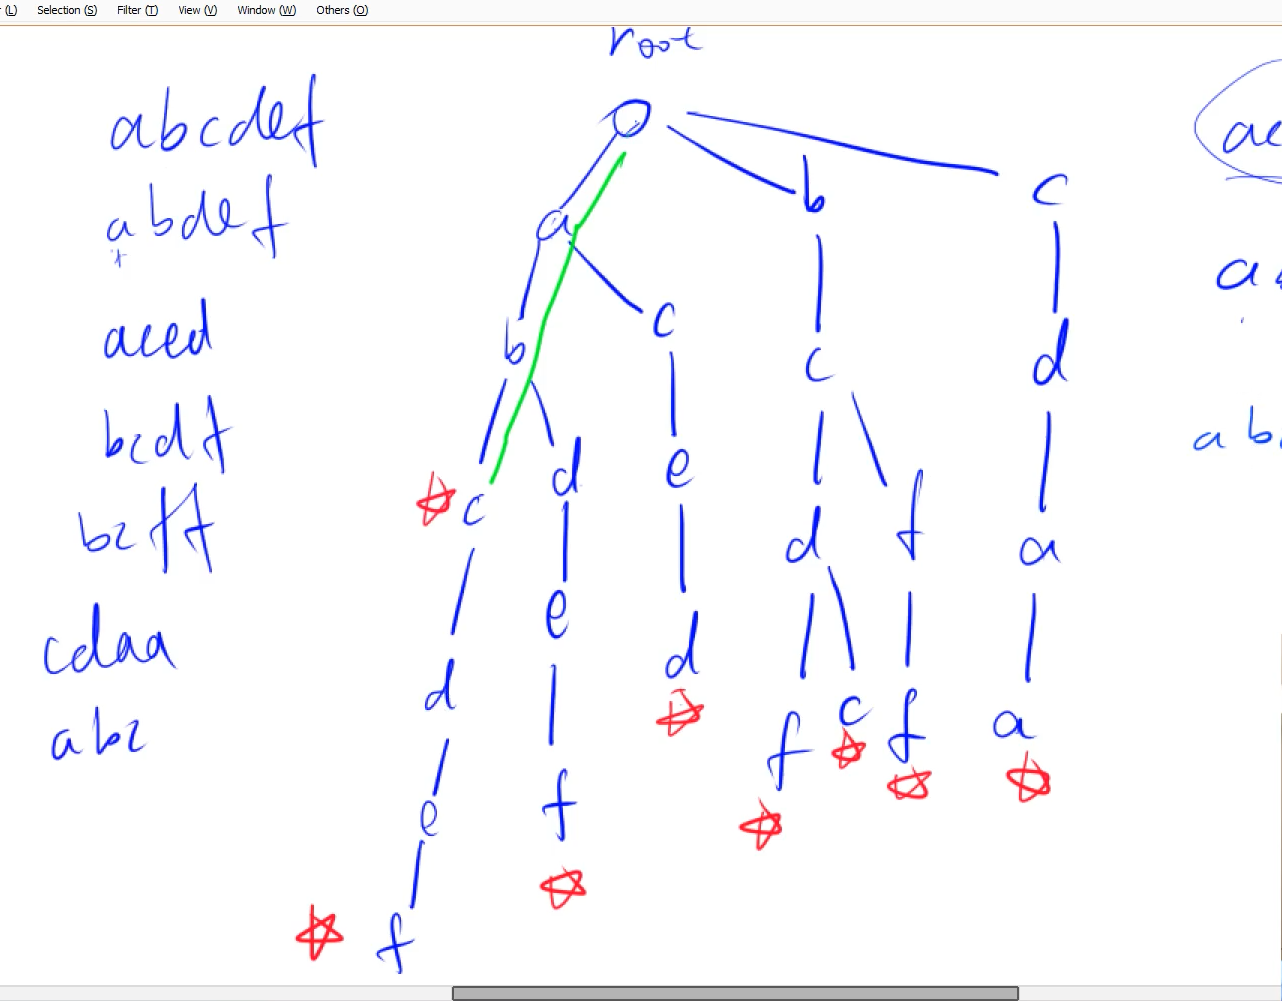 (L) Selection (S) Filter (T) View (V) Window (W) Others (O)
root
abcdef
abdef
aced
bcdf
bcff
cdaa
abc
a b c
b c c d
c d e d a
d e d f a
e f d f c f a
f
ac
a
ab